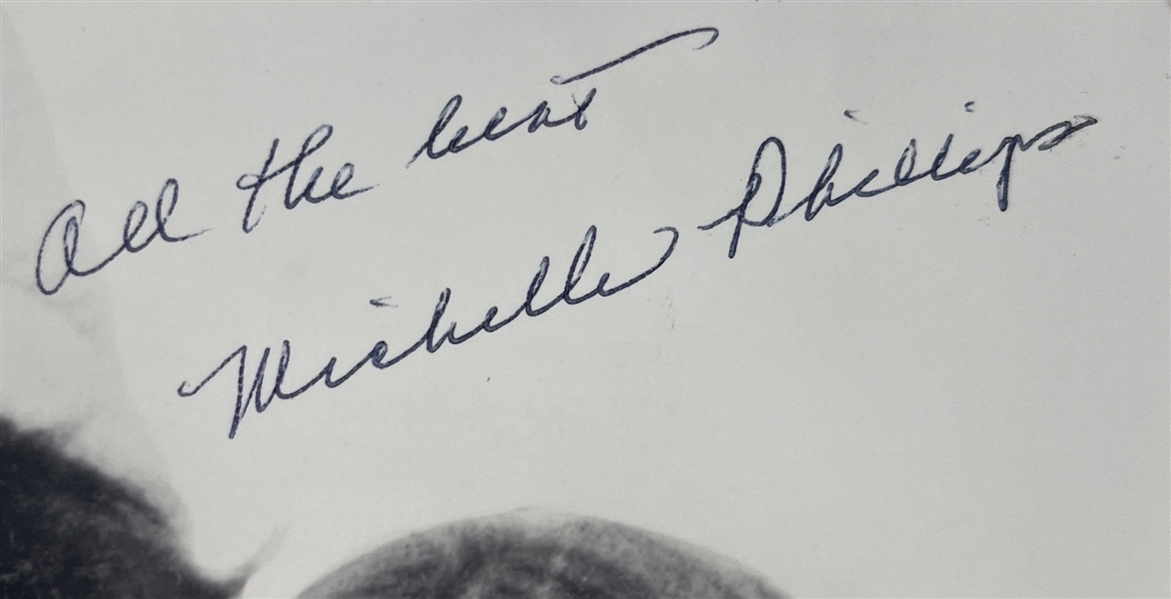 All the best
Michelle Phillips